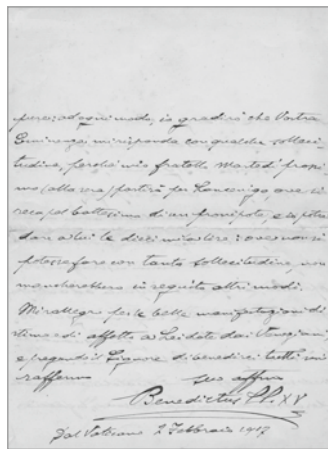 ad ogni modo, io gradirò che Vostra
Eminenza mi risponda con qualche solleci-
tudine, perché mio fratello Martedì prossi-
mo (alla sera) partirà per ove si
reca pel battesimo di un pronipote, e io potrei
dare a lui le dieci mila lire: ove non si
potesse fare con tanta sollecitudine, non
mancherebbero in seguito altri modi.
Mi rallegro per le belle manifestazioni di
stima e di affetto a Lei date dai Veneziani,
e pregando il Signore di benedirci tutti mi
raffermo
suo affmo
Benedictus PP. XV
Dal Vaticano 2 Febbraio 1917